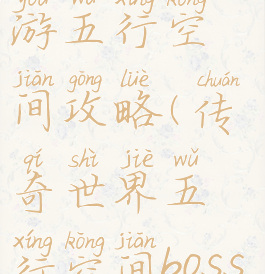 yóu wǔ xíng kōng
游五行空
jiān gōng lüè chuán
间攻略(传
qí shì jiè wǔ
奇世界五
xíng kōng jiān
行空间boss